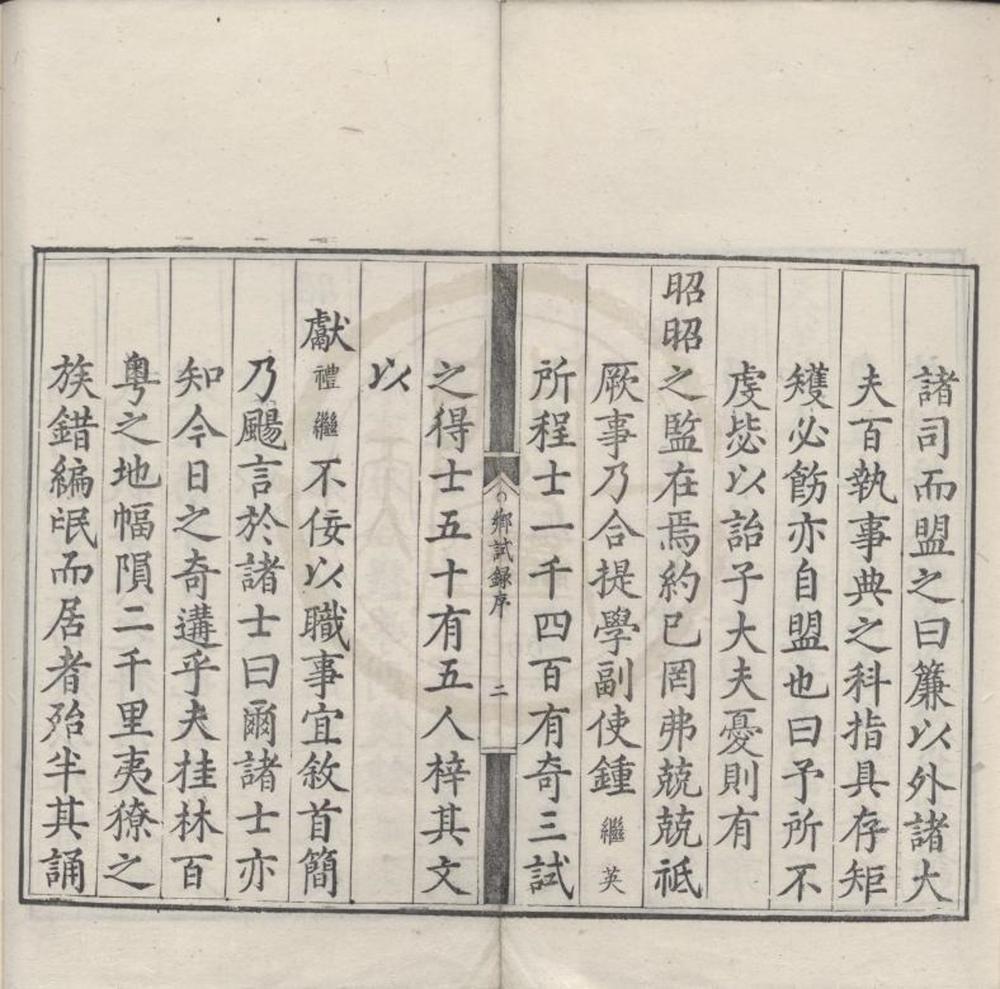 諸司而盟之曰簾以外諸大
夫百執事典之科指具存矩
矱必飭亦自盟也曰予所不
虔毖以詒子大夫憂則有
昭昭之監在焉約已罔弗兢兢祗
厥事乃合提學副使鍾繼英
所程士一千四百有奇三試
鄉試録序 二
之得士五十有五人梓其文
以
獻禮繼不佞以職事宜敘首簡
乃颺言於諸士曰爾諸士亦
知今日之奇遘乎夫桂林百
粤之地幅隕二千里夷獠之
族錯編氓而居者殆半其誦